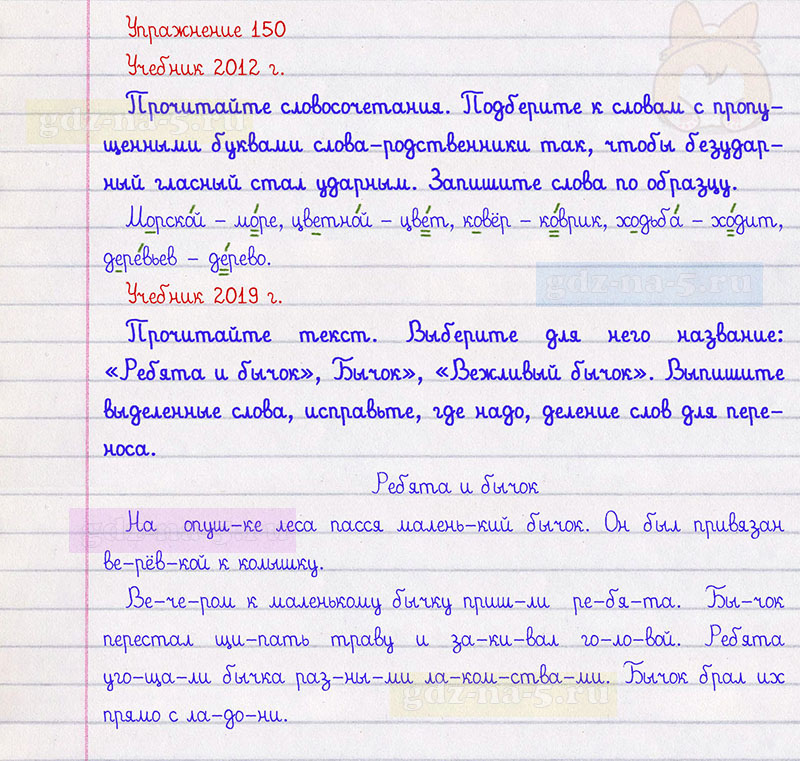 Упражнение 150
Учебник 2012 г.
Прочитайте словосочетания. Подберите к словам с пропу-
щенными буквами слова-родственники так, чтобы безудар-
ный гласный стал ударным. Запишите слова по образцу.
Морско́й – мо́ре, цветно́й – цве́т, ковёр – ко́врик, ходьба́ – хо́дит,
дере́вьев – де́рево.
Учебник 2019 г.
Прочитайте текст. Выберите для него название:
«Ребята и бычок», Бычок», «Вежливый бычок». Выпишите
выделенные слова, исправьте, где надо, деление слов для пере-
носа.
Ребята и бычок
На опуш-ке леса пасся малень-кий бычок. Он был привязан
ве-рёв-кой к колышку.
Ве-че-ром к маленькому бычку приш-ли ре-бя-та. Бы-чок
перестал щи-пать траву и за-ки-вал го-ло-вой. Ребята
уго-ща-ли бычка раз-ны-ми ла-ком-ства-ми. Бычок брал их
прямо с ла-до-ни.
gdz-na-5.ru
gdz-na-5.ru
gdz-na-5.ru
gdz-na-5.ru